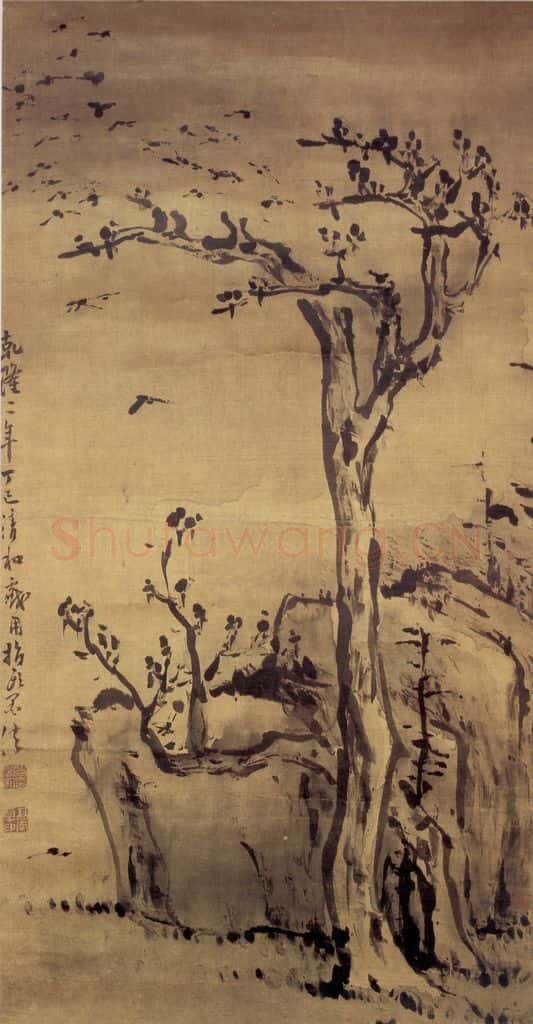 乾隆二年丁巳清和戲用指頭墨法
Shufawang.CN